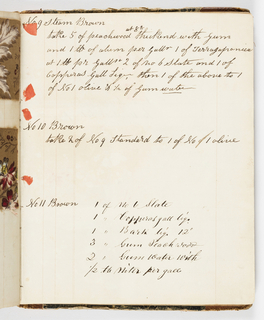 No 9 Steam Brown
at 8º
take 5 of peachwood thickend with Gum
and 1 lb of alum per Galln 1 of
at 1 lb per Galln 2 of no 6 Slate and 1 of
Copperas Gall liqr - then 1 of the above to 1
of No 1 olive & ½ of Gum water
No 10 Brown
take ½ of No 9 Standard to 1 of No 1 olive
No 11 Brown 1 of no 6 Slate
1 " Copperas gall liq.
1 " Bark liq 12º
3 " Gum
2 " Gum Water with
½ lb Niter per gall